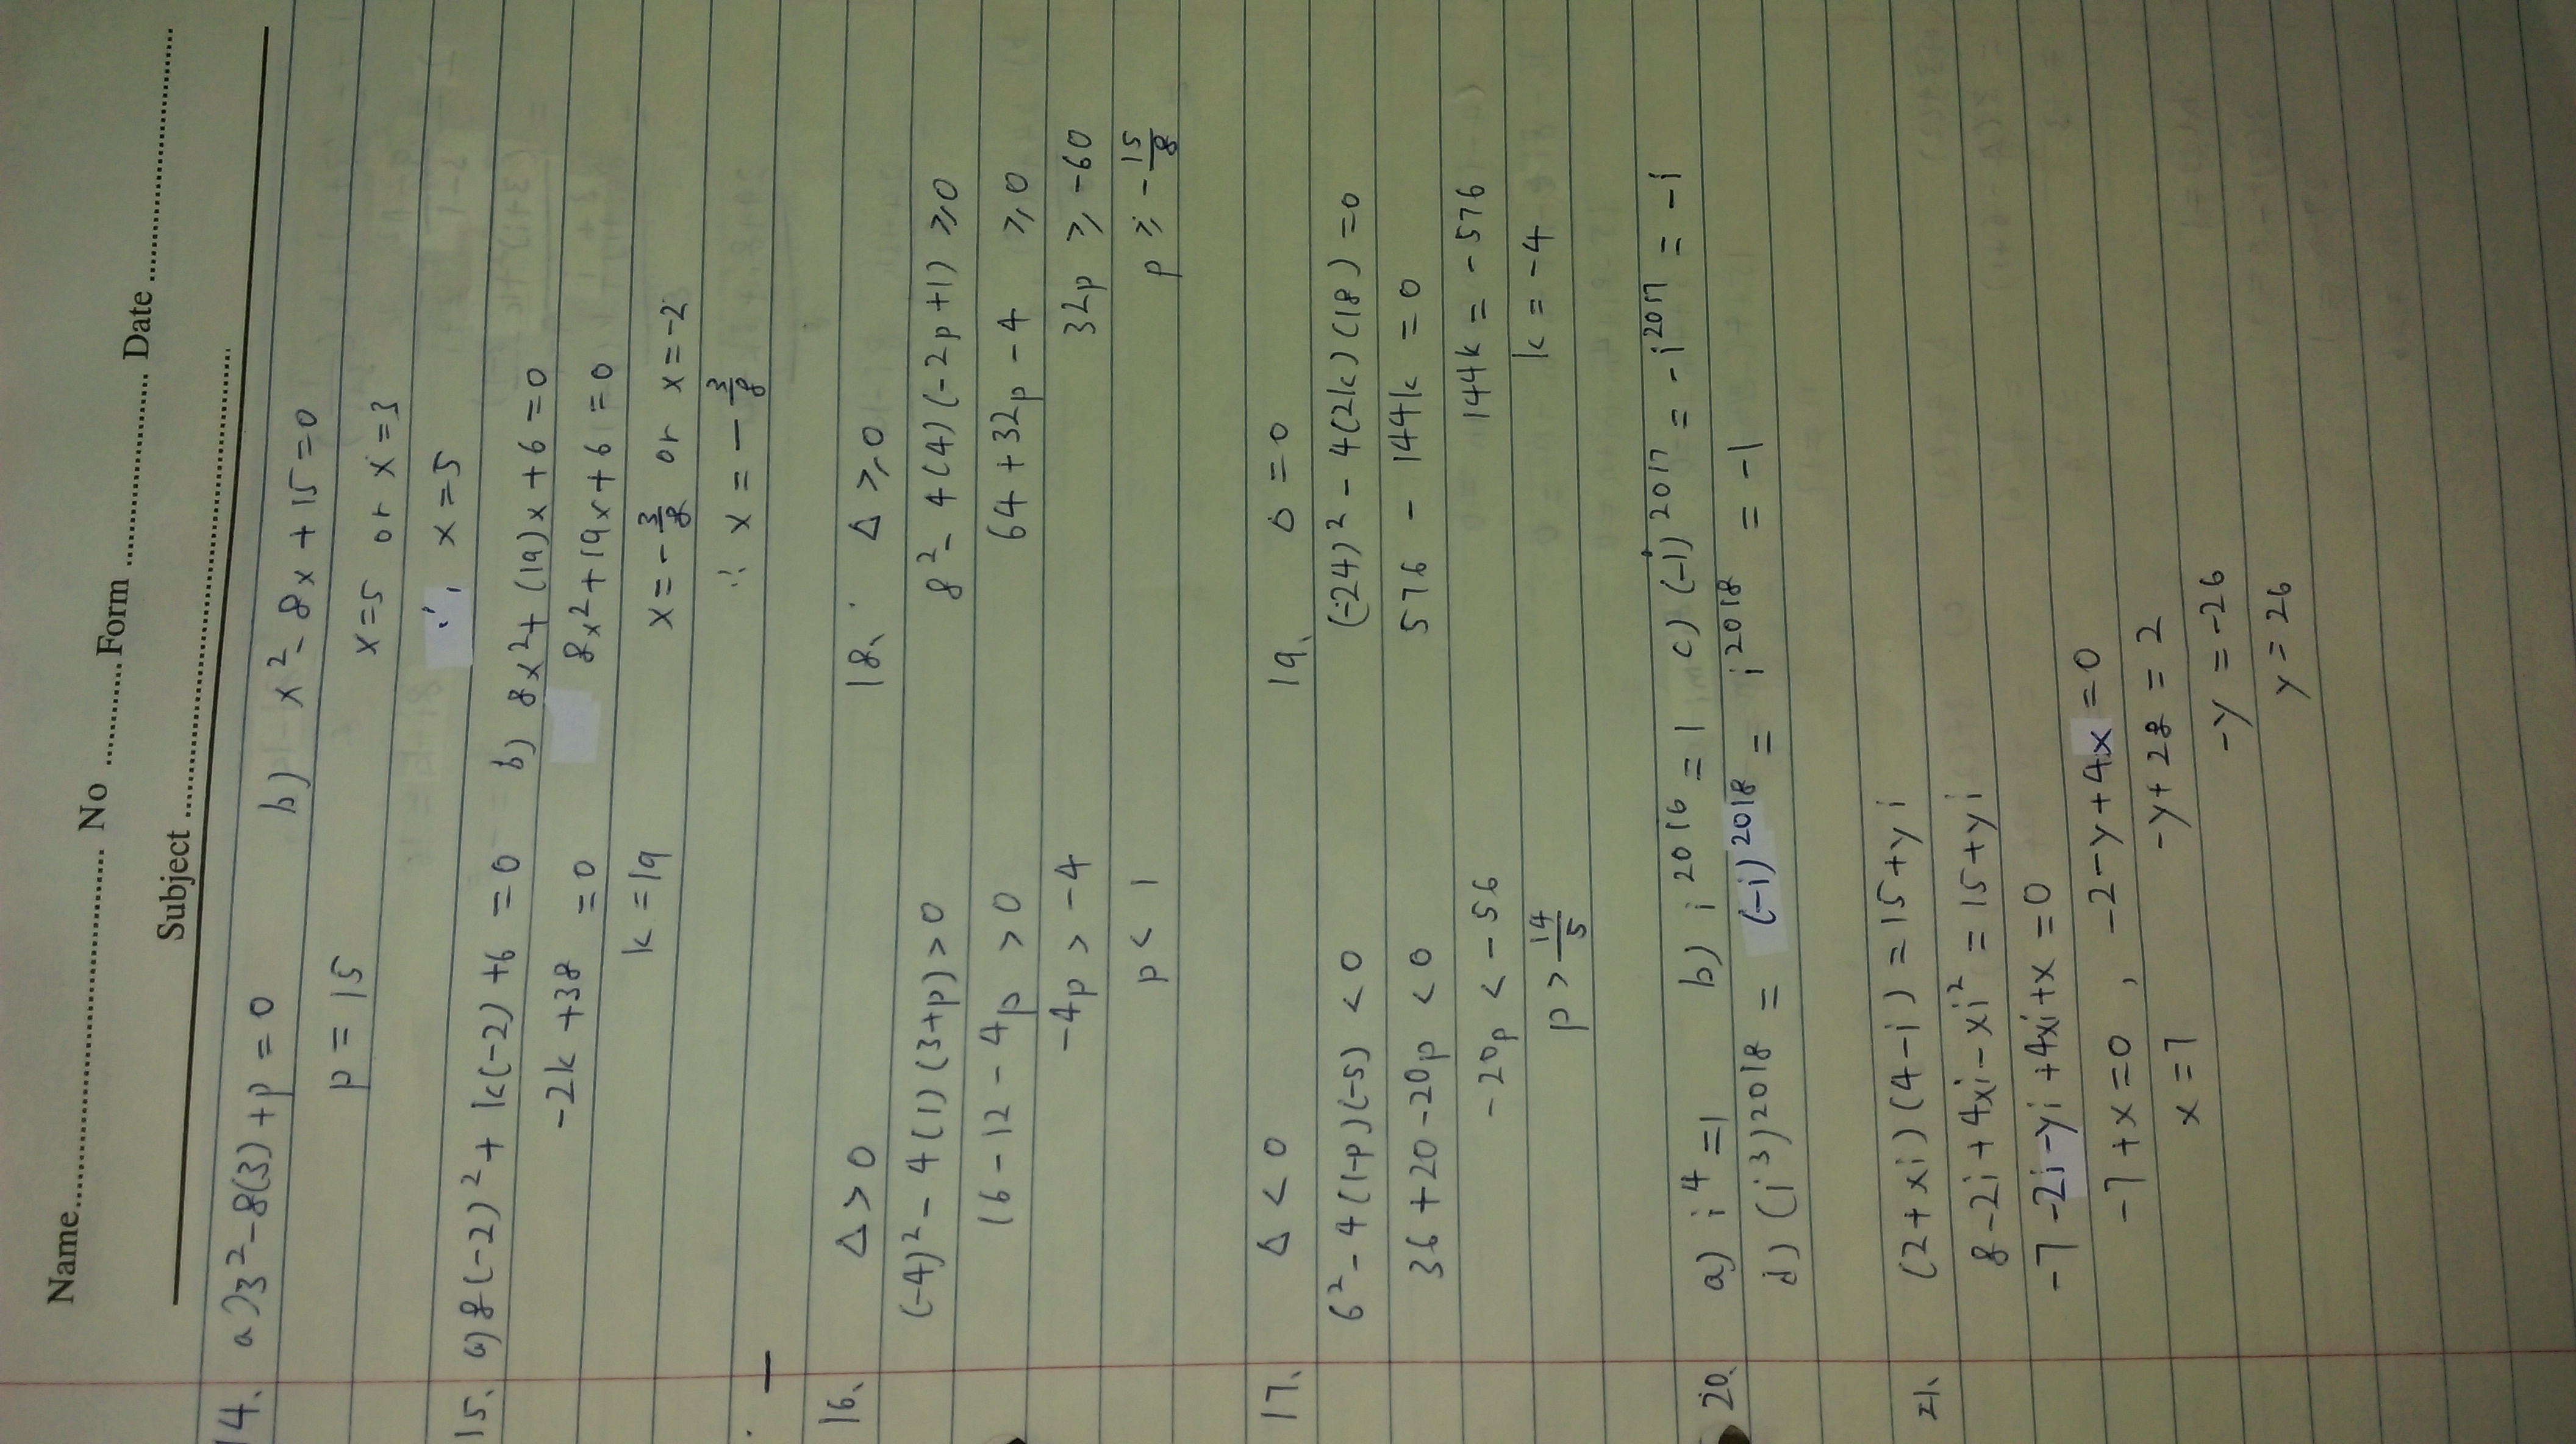 Name.................... No ........... Form .................... Date ....................
Subject ....................
14. a) 3² - 8(3) + p = 0
p = 15
b) x² - 8x + 15 = 0
x = 5 or x = 3
∴ x = 5
15. a) 8(-2)² + k(-2) + 6 = 0
-2k + 38 = 0
k = 19
b) 8x² + (19)x + 6 = 0
8x² + 19x + 6 = 0
x = -3/8 or x = -2
∴ x = -3/8
16. Δ > 0
(-4)² - 4(1)(3+p) > 0
16 - 12 - 4p > 0
-4p > -4
p < 1
18. Δ ≥ 0
8² - 4(4)(-2p+1) ≥ 0
64 + 32p - 4 ≥ 0
32p ≥ -60
p ≥ -15/8
17. Δ < 0
6² - 4(1-p)(-5) < 0
36 + 20 - 20p < 0
-20p < -56
p > 14/5
19. Δ = 0
(-24)² - 4(2k)(18) = 0
576 - 144k = 0
144k = -576
k = -4
20. a) i⁴ = 1 b) i²⁰¹⁶ = 1 c) (-i)²⁰¹⁷ = -i²⁰¹⁷ = -i
d) (i³)²⁰¹⁸ = (-i)²⁰¹⁸ = i²⁰¹⁸ = -1
21. (2+xi)(4-i) = 15+yi
8 - 2i + 4xi - xi² = 15 + yi
-7 - 2i - yi + 4xi + x = 0
-7 + x = 0 , -2 - y + 4x = 0
x = 7
-y + 28 = 2
-y = -26
y = 26